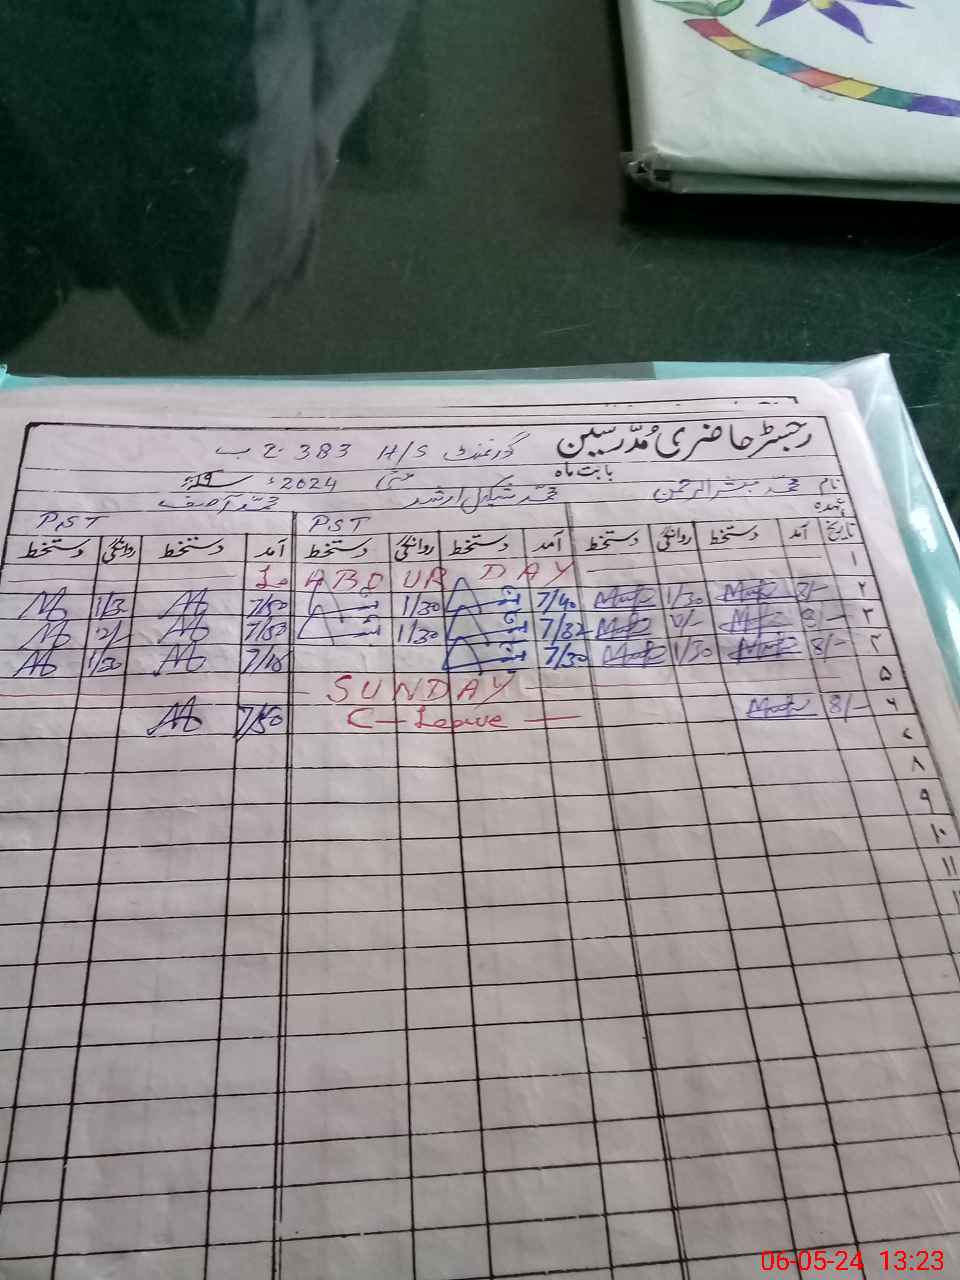 رجسٹر حاضری مُدّرسین گورنمنٹ H/S 383 ج ب
بابت ماہ مئی 2024ء 19ء
نام محمد مبشر الرحمن محمد شکیل ارشد محمد آصف
عہدہ PST PST
تاریخ آمد دستخط روانگی دستخط آمد دستخط روانگی دستخط آمد دستخط روانگی دستخط
۱ LABOUR DAY
۲ 8/- 1/30 7/40 1/30 7/50 1/30
۳ 8/- 12/- 7/32 1/30 7/50 12/-
۴ 8/- 1/30 7/30 7/48 1/30
۵ SUNDAY
۶ 8/- C-Leave 7/50
۷
۸
۹
۱۰
۱۱
06-05-24 13:23